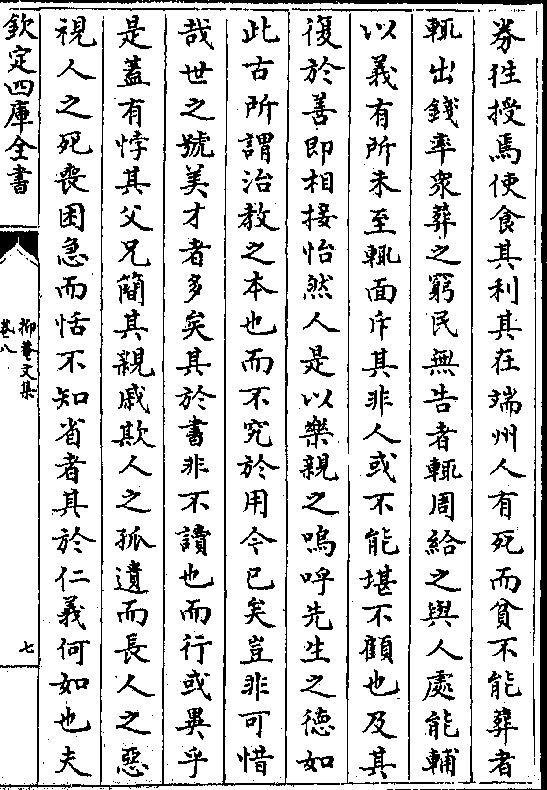 券徃授焉使食其利其在端州人有死而貧不能葬者
輒出錢率衆葬之窮民無告者輒周給之與人處能輔
以義有所未至輒面斥其非人或不能堪不顧也及其
復於善即相接怡然人是以樂親之嗚呼先生之德如
此古所謂治教之本也而不究於用今已矣豈非可惜
哉世之號美才者多矣其於書非不讀也而行或異乎
是蓋有悖其父兄簡其親戚欺人之孤遺而長人之惡
視人之死喪困急而恬不知省者其於仁義何如也夫
欽定四庫全書
抑菴文集
卷八
七